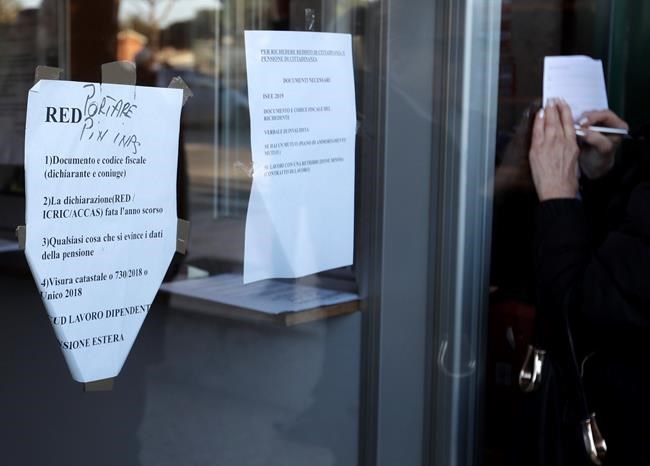 RED PORTARE
PIN INPS
1)Documento e codice fiscale
(dichiarante e coniuge)
2)La dichiarazione(RED /
ICRIC/ACCAS) fata l'anno scorso
3)Qualsiasi cosa che si evince i dati
della pensione
4)Visura catastale o 730/2018 o
Unico 2018
SUD LAVORO DIPENDENT
SIONE ESTERA
PER RICHIEDERE REDDITO DI CITTADINANZA E
PENSIONE DI CITTADINANZA
DOCUMENTI NECESSARI
ISEE 2019
DOCUMENTO E CODICE FISCALE DEL
RICHIEDENTE
VERBALE DI INVALIDITA
SE HAI UN MUTUO (PIANO DI AMMORTAMENTO
MUTUO)
SE LAVORI CON UNA RETRIBUZIONE MINIMA
(CONTRATTO DI LAVORO)